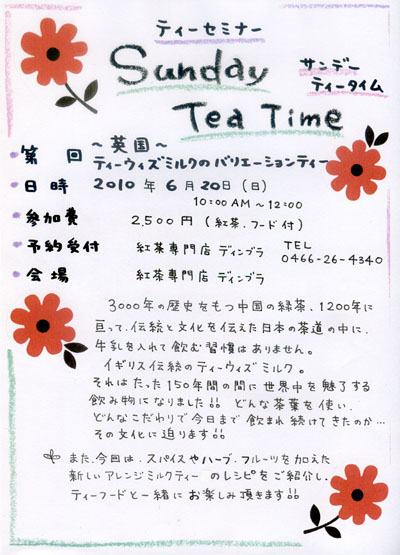 ティーセミナー
Sunday
Tea Time
サンデー
ティータイム
第 回 ～英国～
ティーウィズミルクのバリエーションティー
日時 2010年6月20日(日)
10:00AM～12:00
参加費 2,500円(紅茶、フード付)
予約受付 紅茶専門店 ディンブラ TEL
0466-26-4340
会場 紅茶専門店 ディンブラ
3000年の歴史をもつ中国の緑茶、1200年に
亘って、伝統と文化を伝えた日本の茶道の中に、
牛乳を入れて飲む習慣はありません。
イギリス伝統のティーウィズミルク。
それはたった150年間の間に世界中を魅了する
飲み物になりました!! どんな茶葉を使い、
どんなこだわりで今日まで飲まれ続けてきたのか…
その文化に迫ります!!
また、今回は、スパイスやハーブ、フルーツを加えた
新しいアレンジミルクティーのレシピをご紹介し、
ティーフードと一緒にお楽しみ頂きます!!